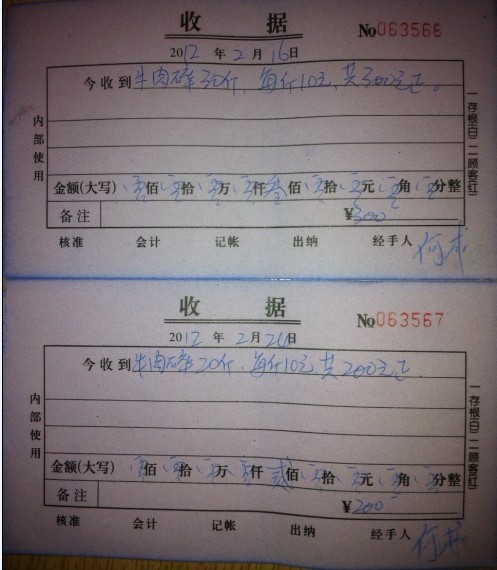 收 据
No063566
2012年2月16日
今收到牛肉碎30斤,每斤10元,共300元正。
内部使用
一存根(白)二顾客(红)
金额(大写) 零佰零拾零万零仟叁佰零拾零元零角零分整
备注 ¥300
核准 会计 记帐 出纳 经手人
收 据
No063567
2012年2月26日
今收到牛肉碎20斤,每斤10元,共200元正
内部使用
一存根(白)二顾客(红)
金额(大写) 零佰零拾零万零仟贰佰零拾零元零角零分整
备注 ¥200
核准 会计 记帐 出纳 经手人